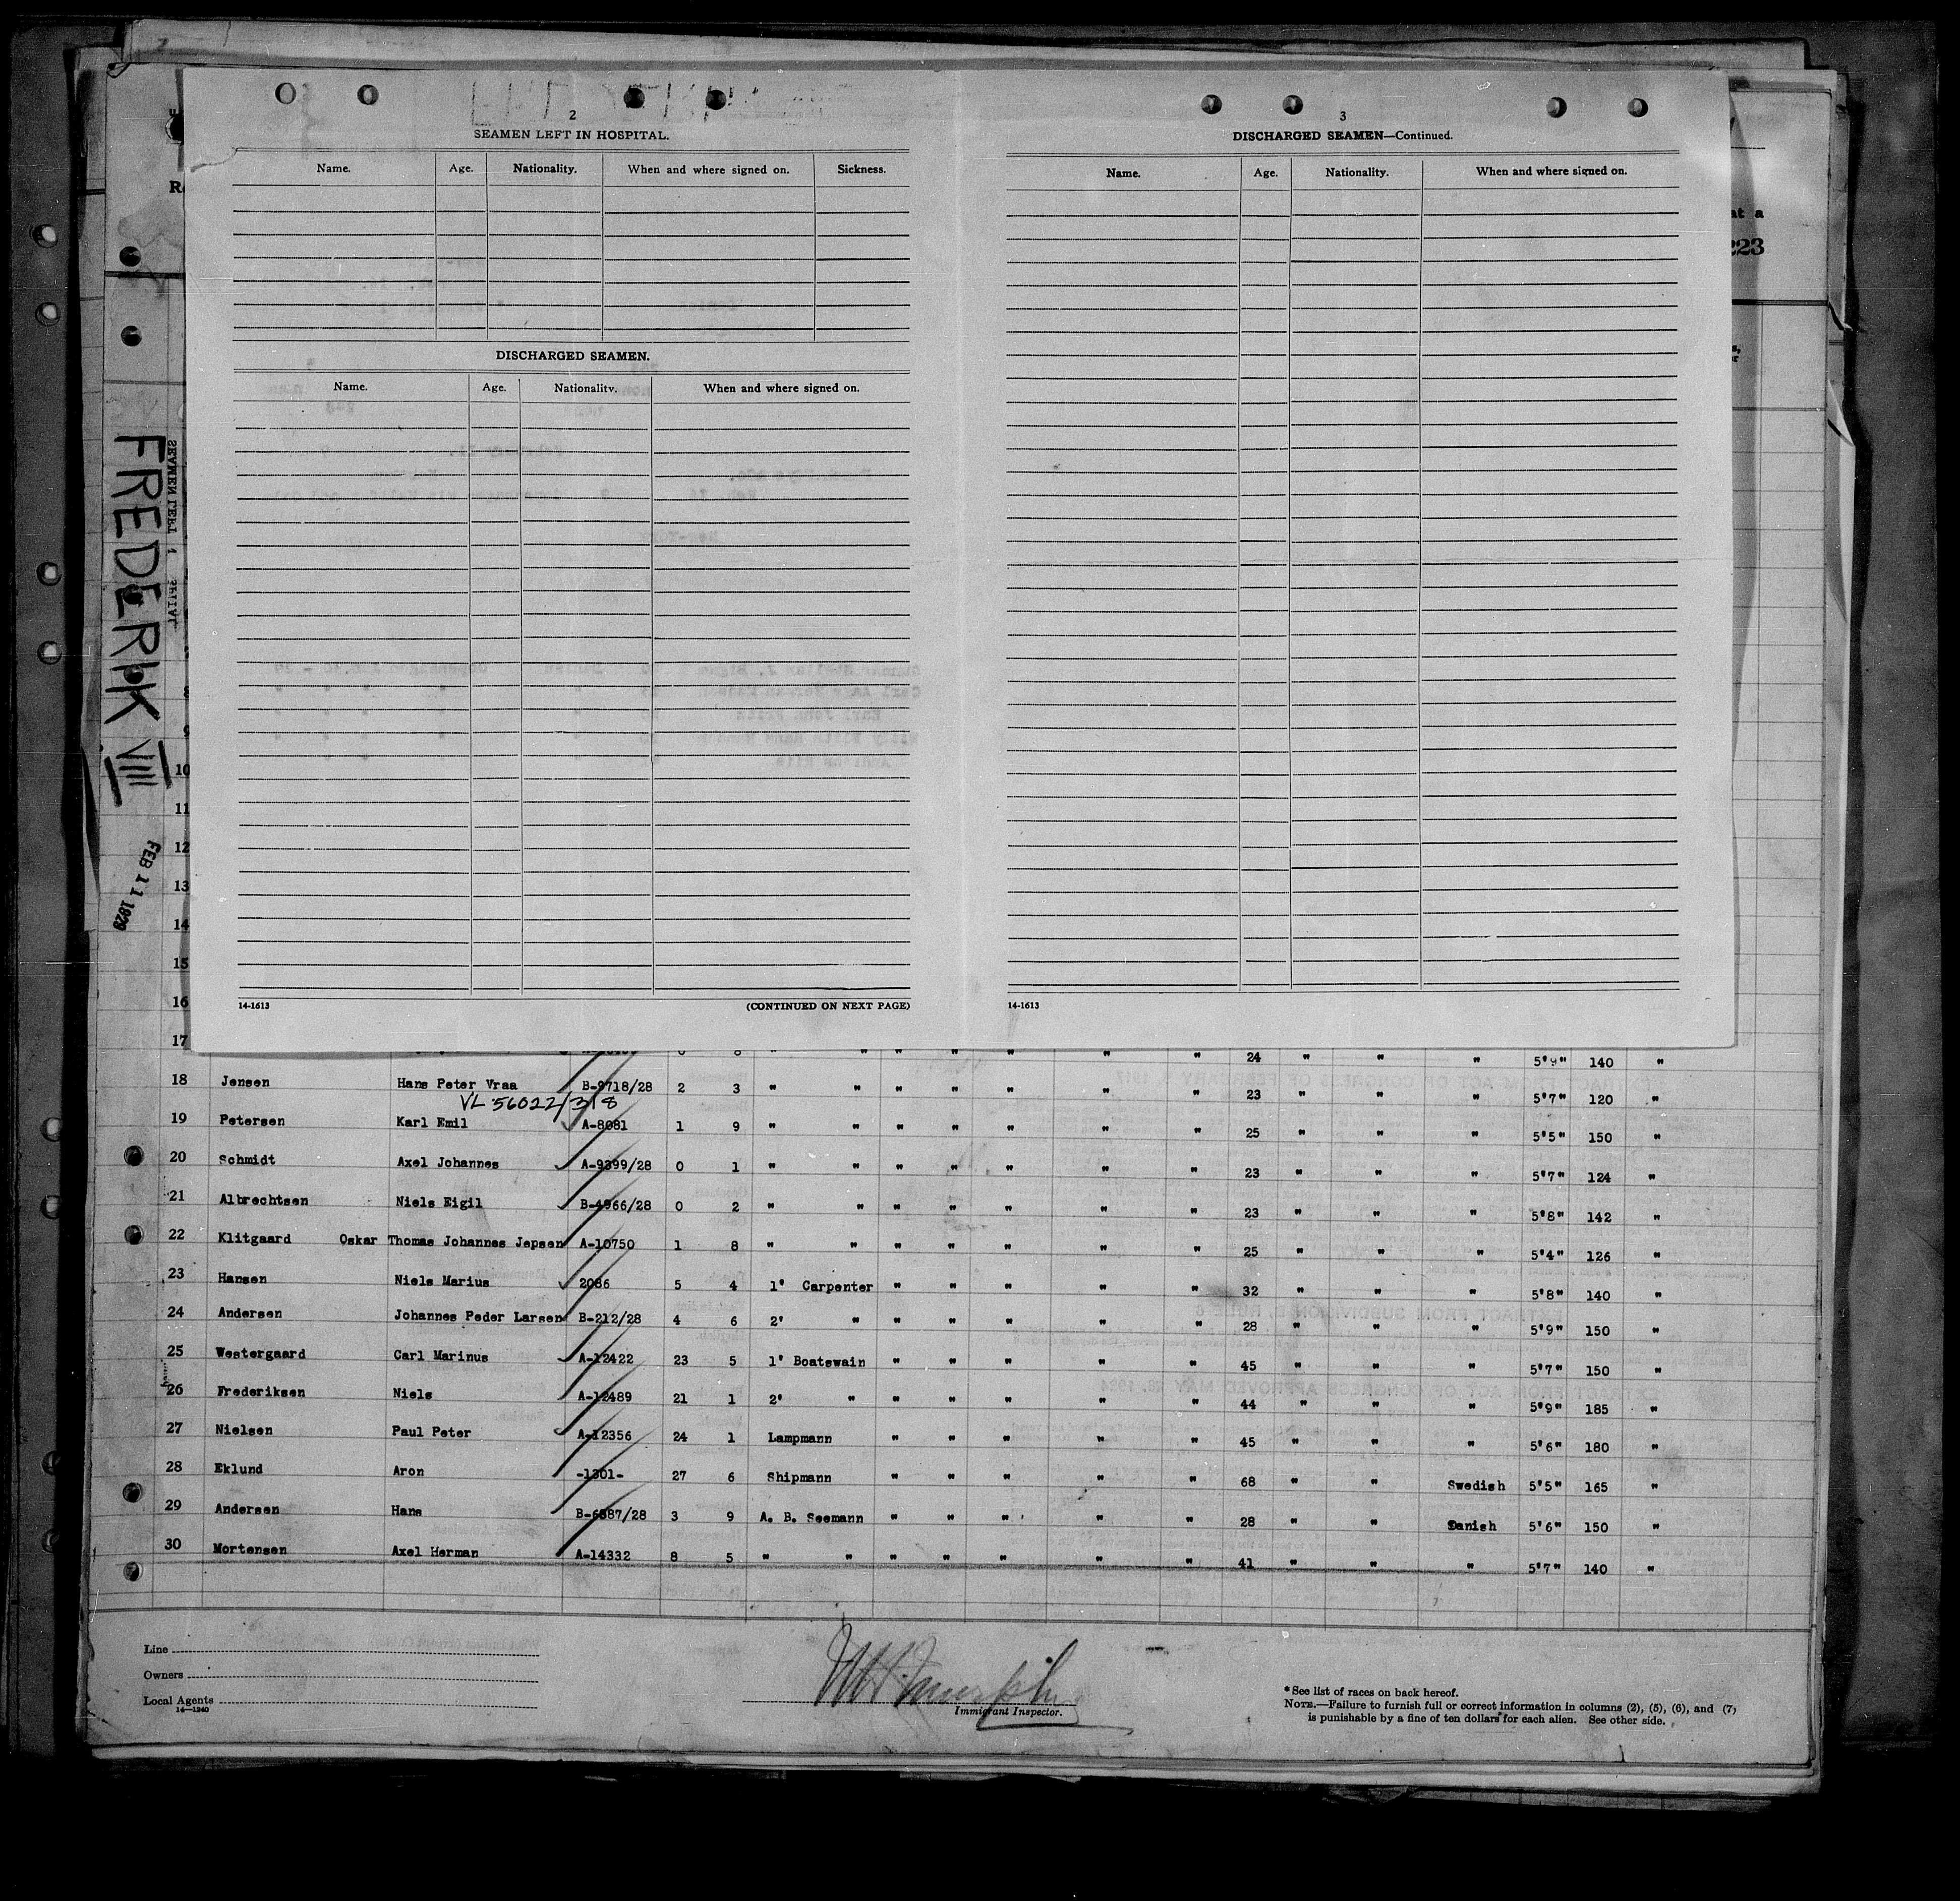 2
SEAMEN LEFT IN HOSPITAL.
Name. Age. Nationality. When and where signed on. Sickness.
DISCHARGED SEAMEN.
Name. Age. Nationality. When and where signed on.
14-1613 (CONTINUED ON NEXT PAGE)
3
DISCHARGED SEAMEN—Continued.
Name. Age. Nationality. When and where signed on.
14-1613
at a
223
FREDERIK VIII
FEB 11 1929
10
11
12
13
14
15
16
17 24 " " " 5'9" 140 "
18 Jensen Hans Peter Vraa B-9718/28 2 3 " " " " " " " 23 " " " 5'7" 120 "
VL 56022/318
19 Petersen Karl Emil A-8081 1 9 " " " " " " " 25 " " " 5'5" 150 "
20 Schmidt Axel Johannes A-9399/28 0 1 " " " " " " " 23 " " " 5'7" 124 "
21 Albrechtsen Niels Eigil B-4966/28 0 2 " " " " " " " 23 " " " 5'8" 142 "
22 Klitgaard Oskar Thomas Johannes Jepsen A-10750 1 8 " " " " " " " 25 " " " 5'4" 126 "
23 Hansen Niels Marius 2086 5 4 1' Carpenter " " " " " 32 " " " 5'8" 140 "
24 Andersen Johannes Peder Larsen B-212/28 4 6 2' " " " " " " 28 " " " 5'9" 150 "
25 Westergaard Carl Marinus A-12422 23 5 1' Boatswain " " " " " 45 " " " 5'7" 150 "
26 Frederiksen Niels A-12489 21 1 2' " " " " " " 44 " " " 5'9" 185 "
27 Nielsen Paul Peter A-12356 24 1 Lampmann " " " " " 45 " " " 5'6" 180 "
28 Eklund Aron -1301- 27 6 Shipmann " " " " " 68 " " Swedish 5'5" 165 "
29 Andersen Hans B-6387/28 3 9 A. B. Seemann " " " " " 28 " " Danish 5'6" 150 "
30 Mortensen Axel Herman A-14332 8 5 " " " " " " " 41 " " " 5'7" 140 "
Line
Owners
Local Agents
14—1240
Immigrant Inspector.
* See list of races on back hereof.
NOTE.—Failure to furnish full or correct information in columns (2), (5), (6), and (7)
is punishable by a fine of ten dollars for each alien. See other side.